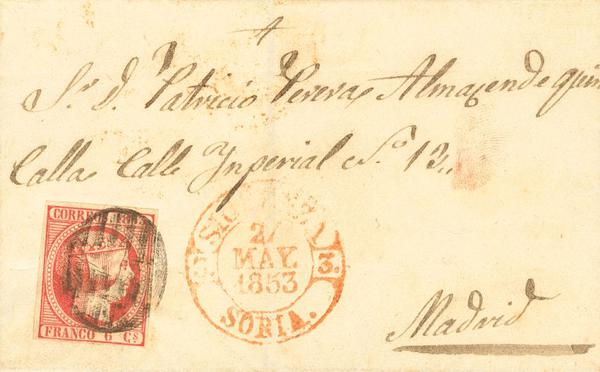 Sr. D. Patricio Pereva Almazen de quin
Calla Calle Ynperial No. 12
CORREOS
FRANCO 6 Cs
2
MAY.
1853
3.
SORIA.
Madrid